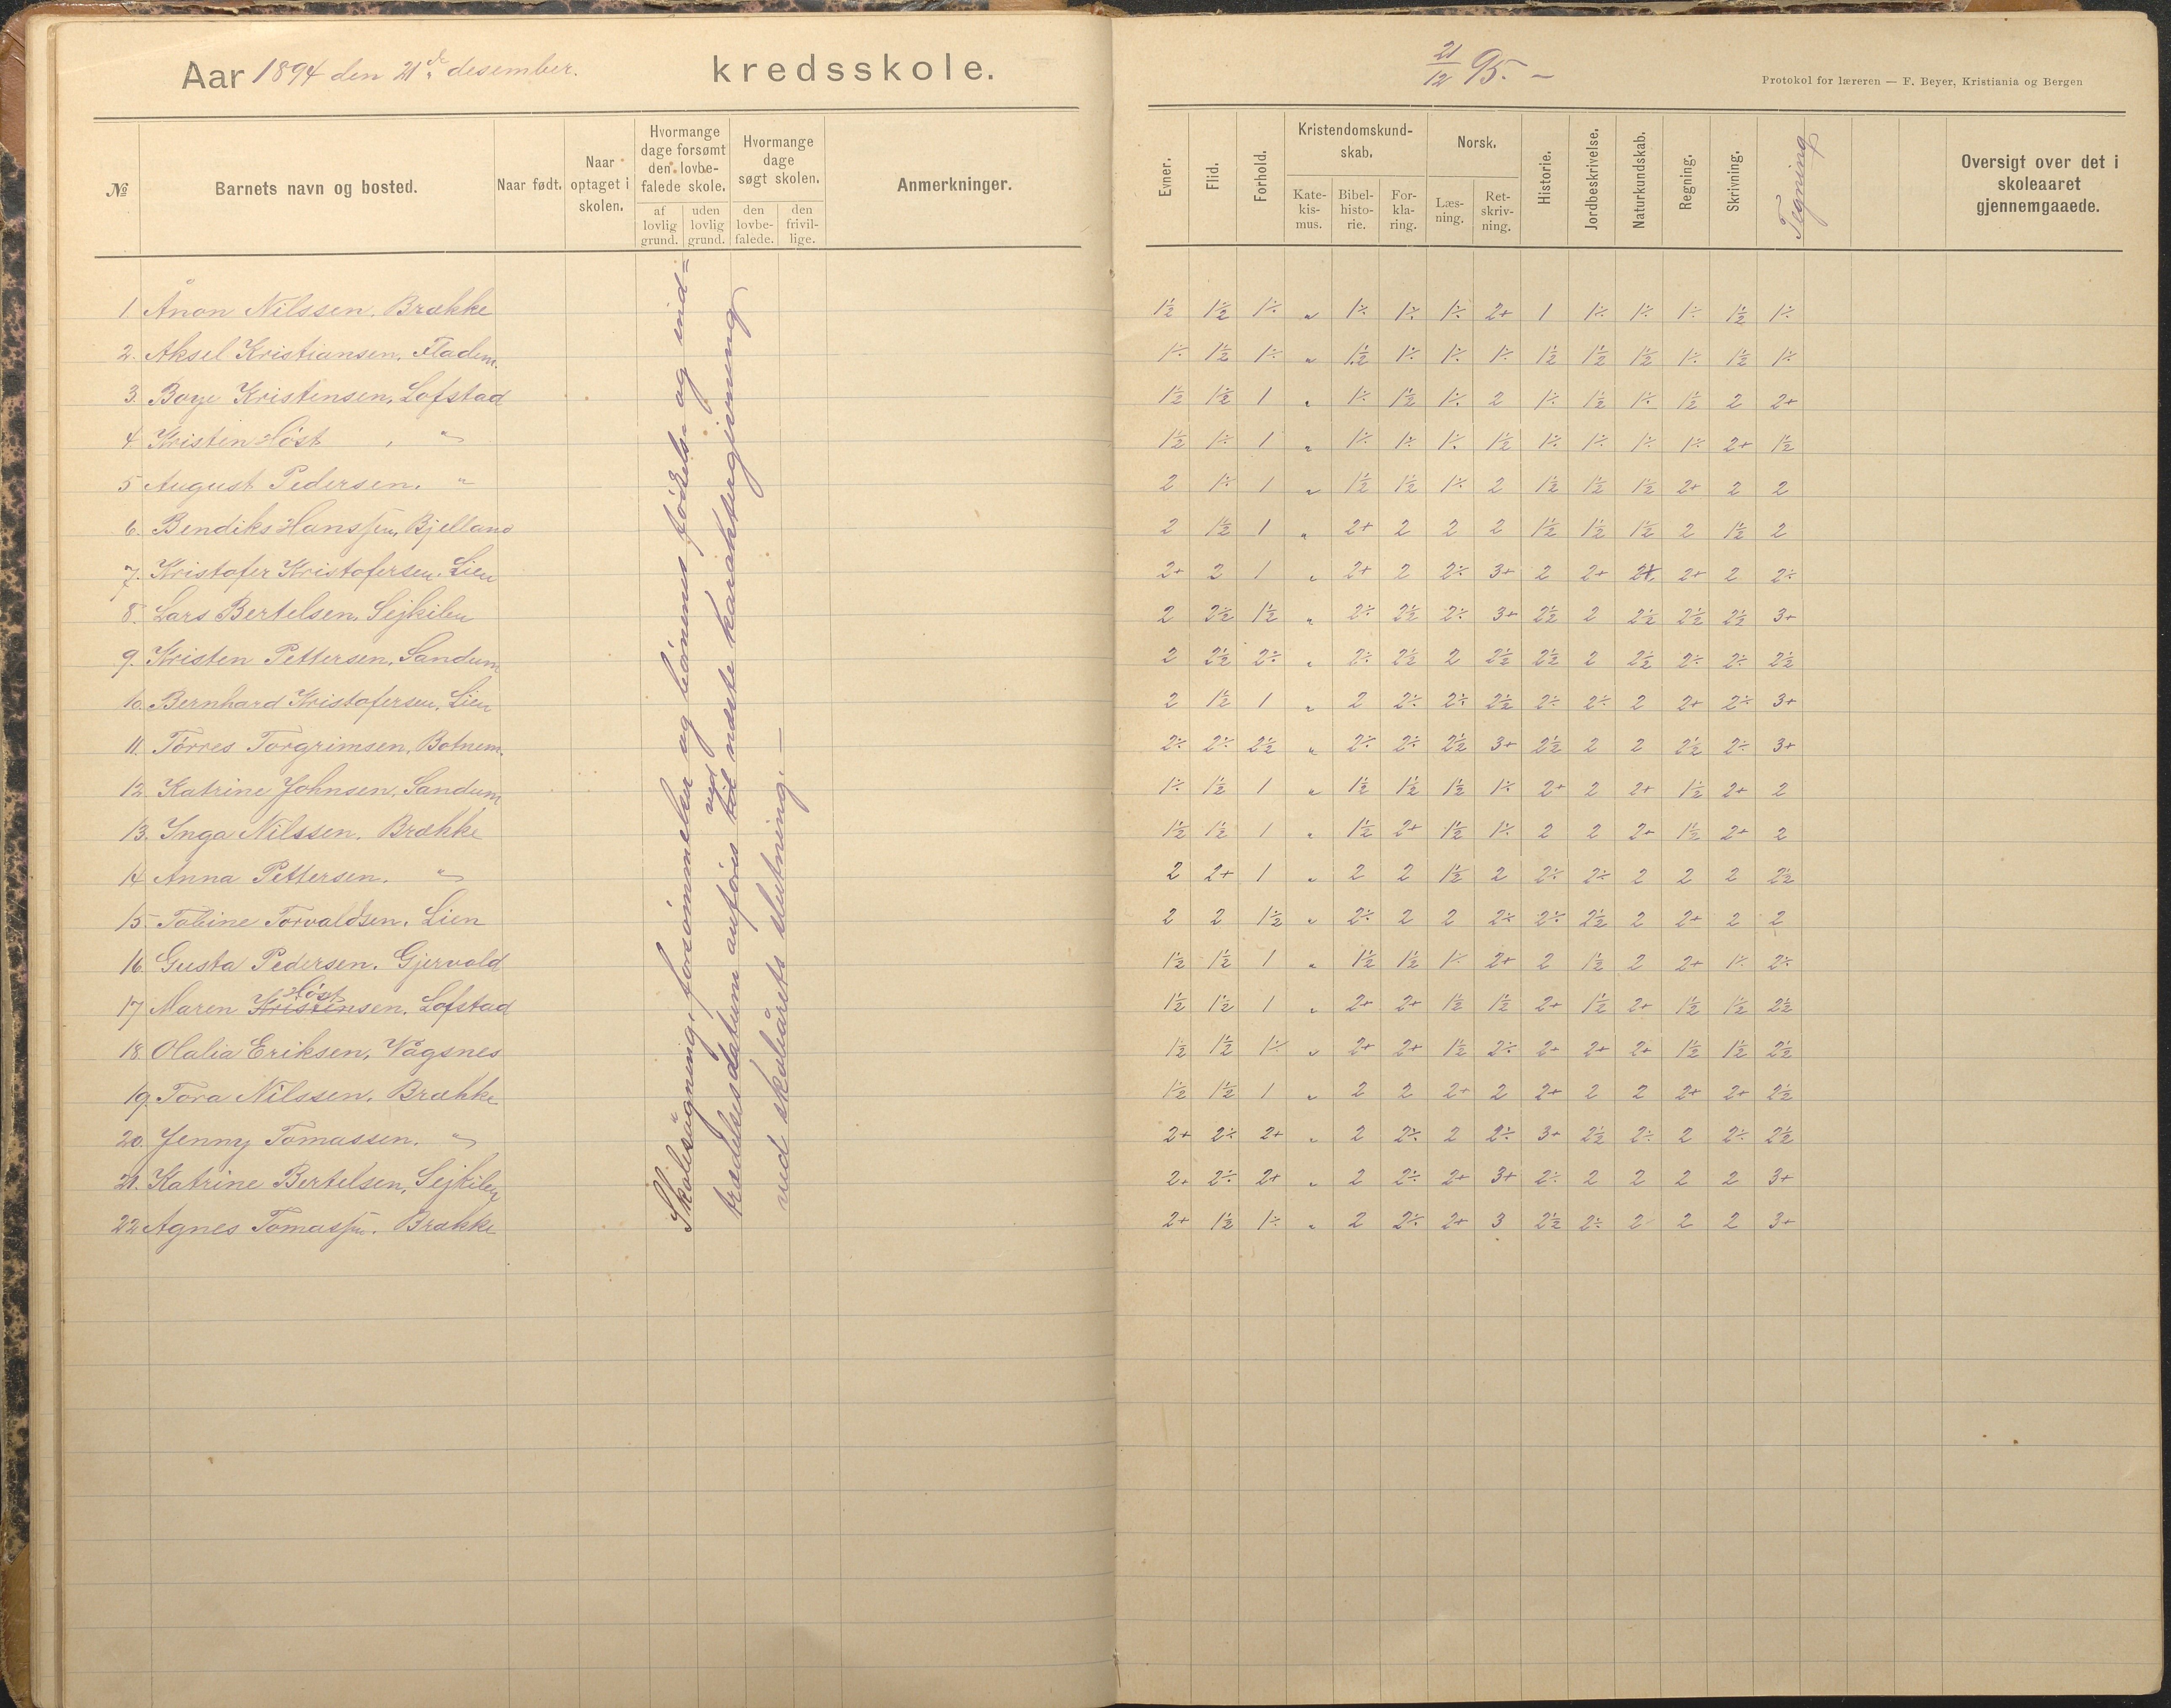 Aar 1894 den 21de desember. kredsskole.
№ Barnets navn og bosted. Naar født. Naar optaget i skolen. Hvormange dage forsømt den lovbefalede skole. af lovlig grund. uden lovlig grund. Hvormange dage søgt skolen. den lovbefalede. den frivillige. Anmerkninger.
1 Ånon Nilssen. Brække
2. Aksel Kristiansen. Fladem.
3. Boye Kristensen, Lofstad
4. Kristen Höst , "
5 August Pedersen. "
6. Bendiks Hanssen, Bjelland
7. Kristofer Kristofersen. Lien
8. Lars Bertelsen. Sejkilen
9. Kristen Pettersen. Sandum
10. Bernhard Kristofersen, Lien
11. Törres Torgrimsen, Botnem.
12. Katrine Johnsen, Sandum
13. Inga Nilssen. Brække
14 Anna Pettersen. "
15. Tobine Torvaldsen. Lien
16. Gusta Pedersen. Gjervold
Höst
17 Maren Kristensen. Lofstad
18. Olalia Eriksen, Vågsnes
19. Tora Nilssen. Brække
20. Jenny Tomassen. "
21. Katrine Bertelsen, Sejkilen
22 Agnes Tomassen. Brække
Skolesögning, forsömmelser og lönnens födsels- og ind=
trædelsesdatum anföres til ved næste karaktergivning
ved skoleårets slutning. —
21/12 95. —
Protokol for læreren — F. Beyer, Kristiania og Bergen
Evner. Flid. Forhold. Kristendomskundskab. Katekismus. Bibelhistorie. Forklaring. Norsk. Læsning. Retskrivning. Historie. Jordbeskrivelse. Naturkundskab. Regning. Skrivning. Tegning Oversigt over det i skoleaaret gjennemgaaede.
1½ 1½ 1÷ " 1÷ 1÷ 1÷ 2+ 1 1÷ 1÷ 1÷ 1½ 1÷
1÷ 1½ 1÷ " 1½ 1÷ 1÷ 1÷ 1½ 1½ 1½ 1÷ 1½ 1÷
1½ 1½ 1 " 1÷ 1½ 1÷ 2 1÷ 1½ 1÷ 1½ 2 2+
1½ 1÷ 1 " 1÷ 1÷ 1÷ 1½ 1÷ 1÷ 1÷ 1÷ 2+ 1½
2 1÷ 1 " 1½ 1½ 1÷ 2 1½ 1½ 1½ 2+ 2 2
2 1½ 1 " 2+ 2 2 2 1½ 1½ 1½ 2 1½ 2
2+ 2 1 " 2+ 2 2÷ 3+ 2 2+ 2+ 2+ 2 2÷
2 2½ 1½ " 2÷ 2½ 2÷ 3+ 2½ 2 2½ 2½ 2½ 3+
2 2½ 2÷ " 2÷ 2½ 2 2½ 2½ 2 2½ 2÷ 2÷ 2½
2 1½ 1 " 2 2÷ 2÷ 2½ 2÷ 2÷ 2 2+ 2÷ 3+
2÷ 2÷ 2½ " 2÷ 2÷ 2½ 3+ 2½ 2 2 2½ 2÷ 3+
1÷ 1½ 1 " 1½ 1½ 1½ 1÷ 2+ 2 2+ 1½ 2+ 2
1½ 1½ 1 " 1½ 2+ 1½ 1÷ 2 2 2+ 1½ 2+ 2
2 2+ 1 " 2 2 1½ 2 2÷ 2÷ 2 2 2 2½
2 2 1½ " 2÷ 2 2 2÷ 2÷ 2½ 2 2+ 2 2
1½ 1½ 1 " 1½ 1½ 1÷ 2+ 2 1½ 2 2+ 1÷ 2÷
1½ 1½ 1 " 2+ 2+ 1½ 1½ 2+ 1½ 2+ 1½ 1½ 2½
1½ 1½ 1÷ " 2+ 2+ 1½ 2÷ 2+ 2+ 2+ 1½ 1½ 2½
1½ 1½ 1 " 2 2 2+ 2 2+ 2 2 2+ 2+ 2½
2+ 2÷ 2+ " 2 2÷ 2 2÷ 3+ 2½ 2÷ 2 2÷ 2½
2+ 2÷ 2+ " 2 2÷ 2+ 3+ 2÷ 2 2 2 2 3+
2+ 1½ 1÷ " 2 2÷ 2+ 3 2½ 2÷ 2 2 2 3+